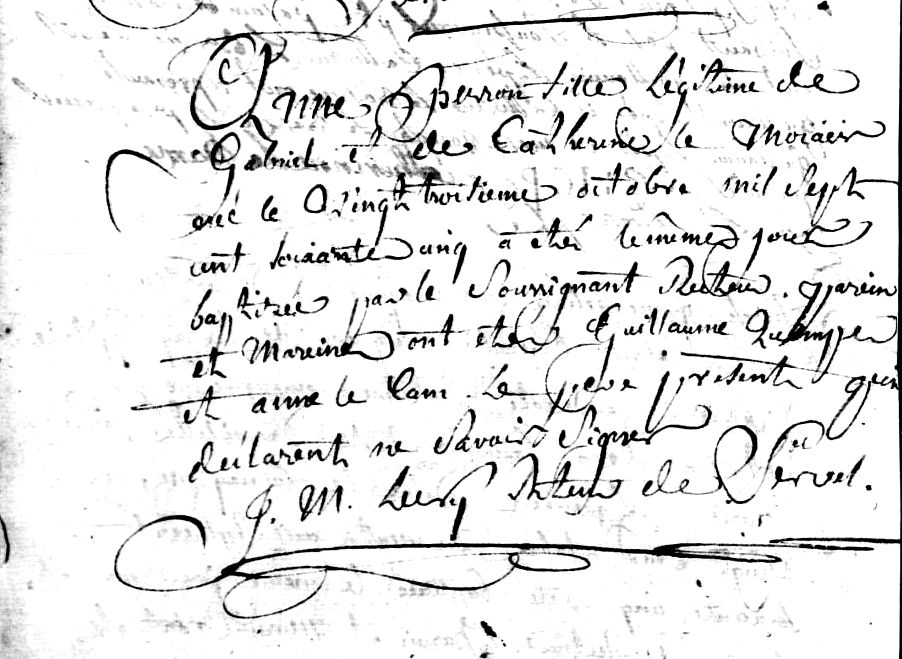 Anne perron fille légitime de
Gabriel et de Catherine le Moiaire
née le vingt troisieme octobre mil sept
cent soixante cinq a etéé le même jour
baptisee par le Soussignant Recteur. parein
et Mareine ont étéé Guillaume
et anne le Cam. Le pere present qui
déclarent ne savoir signer
J. M. Recteur de Servel.